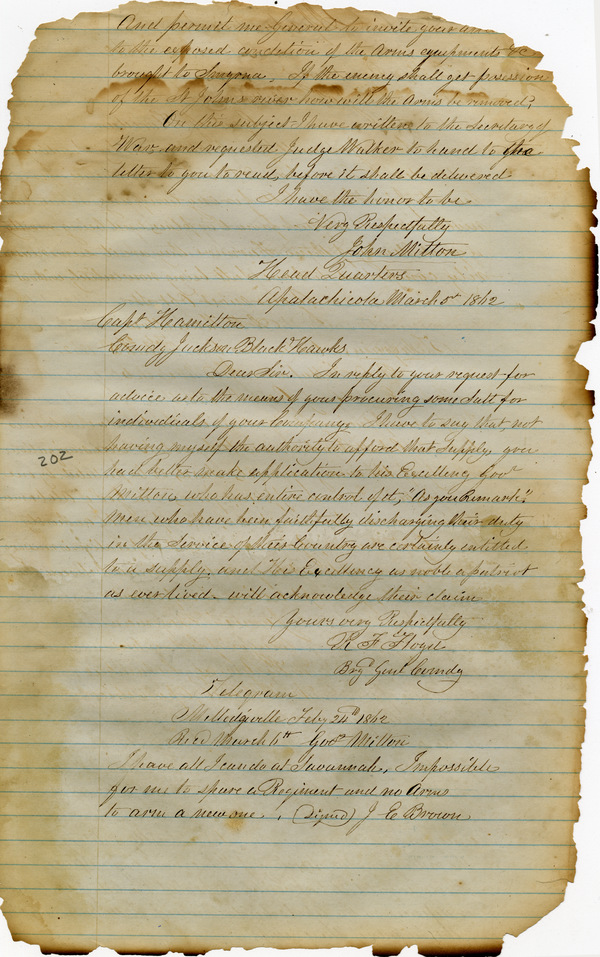 And permit me General to invite your
to the exposed condition of the Arms equipments &c
brought to Smyrna. If the enemy shall get possession
of the St Johns river how will the Arms be removed?
On this subject I have written to the Secretary of
War and requested Judge Walker to hand to the
letter to you to read, before it shall be delivered
I have the honor to be
Very Respectfully
John Milton
Head Quarters
Apalachicola March 1862
Capt Hamilton
Comdg Jackson Black Hawks
Dear Sir. In reply to your request for
advice as to the means of your procuring some Salt for
individuals of your Company, I have to say that not
having myself the authority to afford that Supply you
had better make application to his Excellency Govr
Milton who has entire control of it, "As you Remark"
men who have been faithfully discharging their duty
in the Service of their Country are certainly entitled
to a supply, and His Excellency as noble a patriot
as ever lived will acknowledge their claim
Yours very Respectfully
R F Floyd
Brg Genl Comdg
202
Telegram
Milledgeville Feby 24th 1862
Recd March 6th Govr Milton
I have all I can do at Savannah, Impossible
for me to spare a Regiment and no Arms
to arm a new one. (Signed) J E Brown